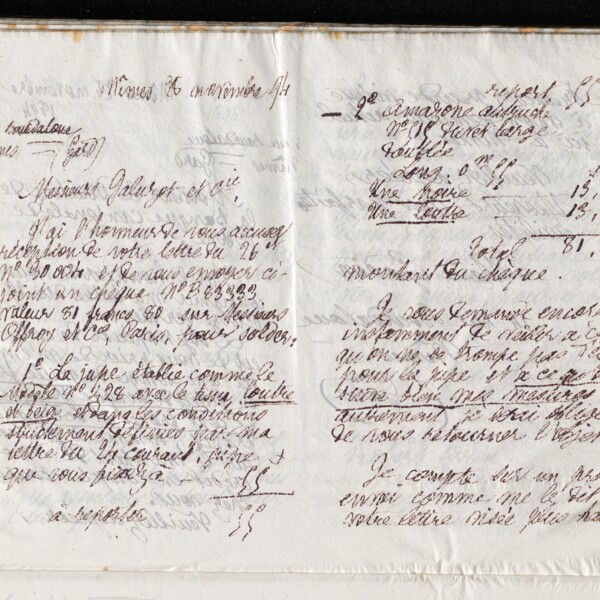 Nîmes 28 novembre 94
Gard
Messieurs Galuzot et Cie
J'ai l'honneur de vous accuser
réception de votre lettre du 26
N° 30004 et de vous envoyer ci-
joint un chèque N° B 83333
valeur 81 francs 80 sur Messieurs
Offroy et Cie, Paris, pour solder:
1° La jupe établie comme le
modèle N° 428 avec le tissu loutre
et beige et dans les conditions
strictement définies par ma
lettre du 24 courant, prise
que vous
à reporter 55
report 55
2° Amazone autruche
N° large
touffée
Long. 0m
Une noire 13,
Une loutre 13,
Total 81,
montant du chèque.
Je vous demande encore
instamment de veiller à ce
qu'on ne se trompe pas
pour la jupe et à ce qu'
suive bien mes mesures
autrement je serai obligé
de vous retourner l'objet
Je compte sur un
envoi comme me le dit
votre lettre visée plus ha